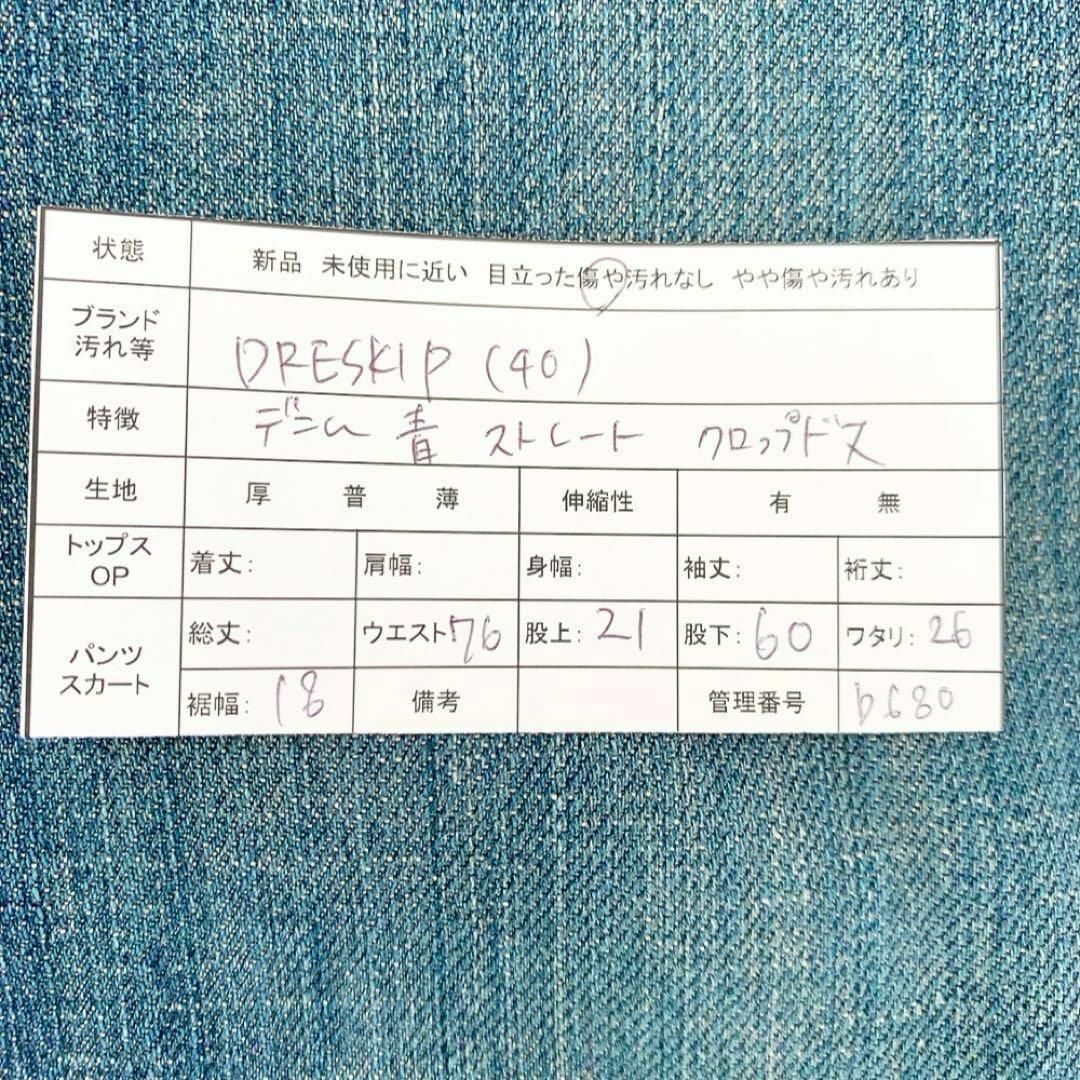 状態 新品 未使用に近い 目立った傷や汚れなし やや傷や汚れあり
ブランド
汚れ等 DRESKIP (40)
特徴 デニム 青 ストレート クロップドス
生地 厚 普 薄 伸縮性 有 無
トップス
OP 着丈: 肩幅: 身幅: 袖丈: 裄丈:
パンツ
スカート 総丈: ウエスト76 股上: 21 股下: 60 ワタリ: 26
裾幅: 18 備考 管理番号 b680